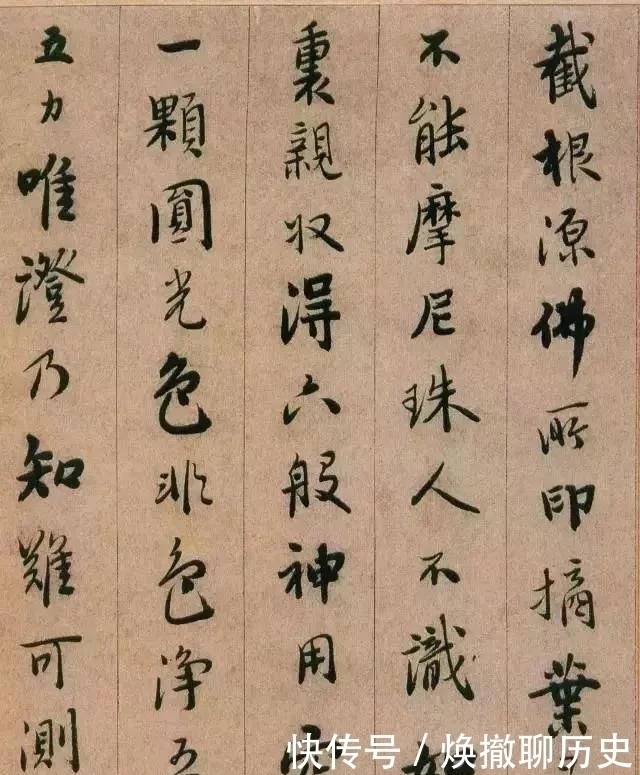 截根源佛所印摘葉
不能摩尼珠人不識
裏親収得六般神用
一顆圓光色非色浄五
五力唯澄乃知難可測
快传号 / 焕撤聊历史